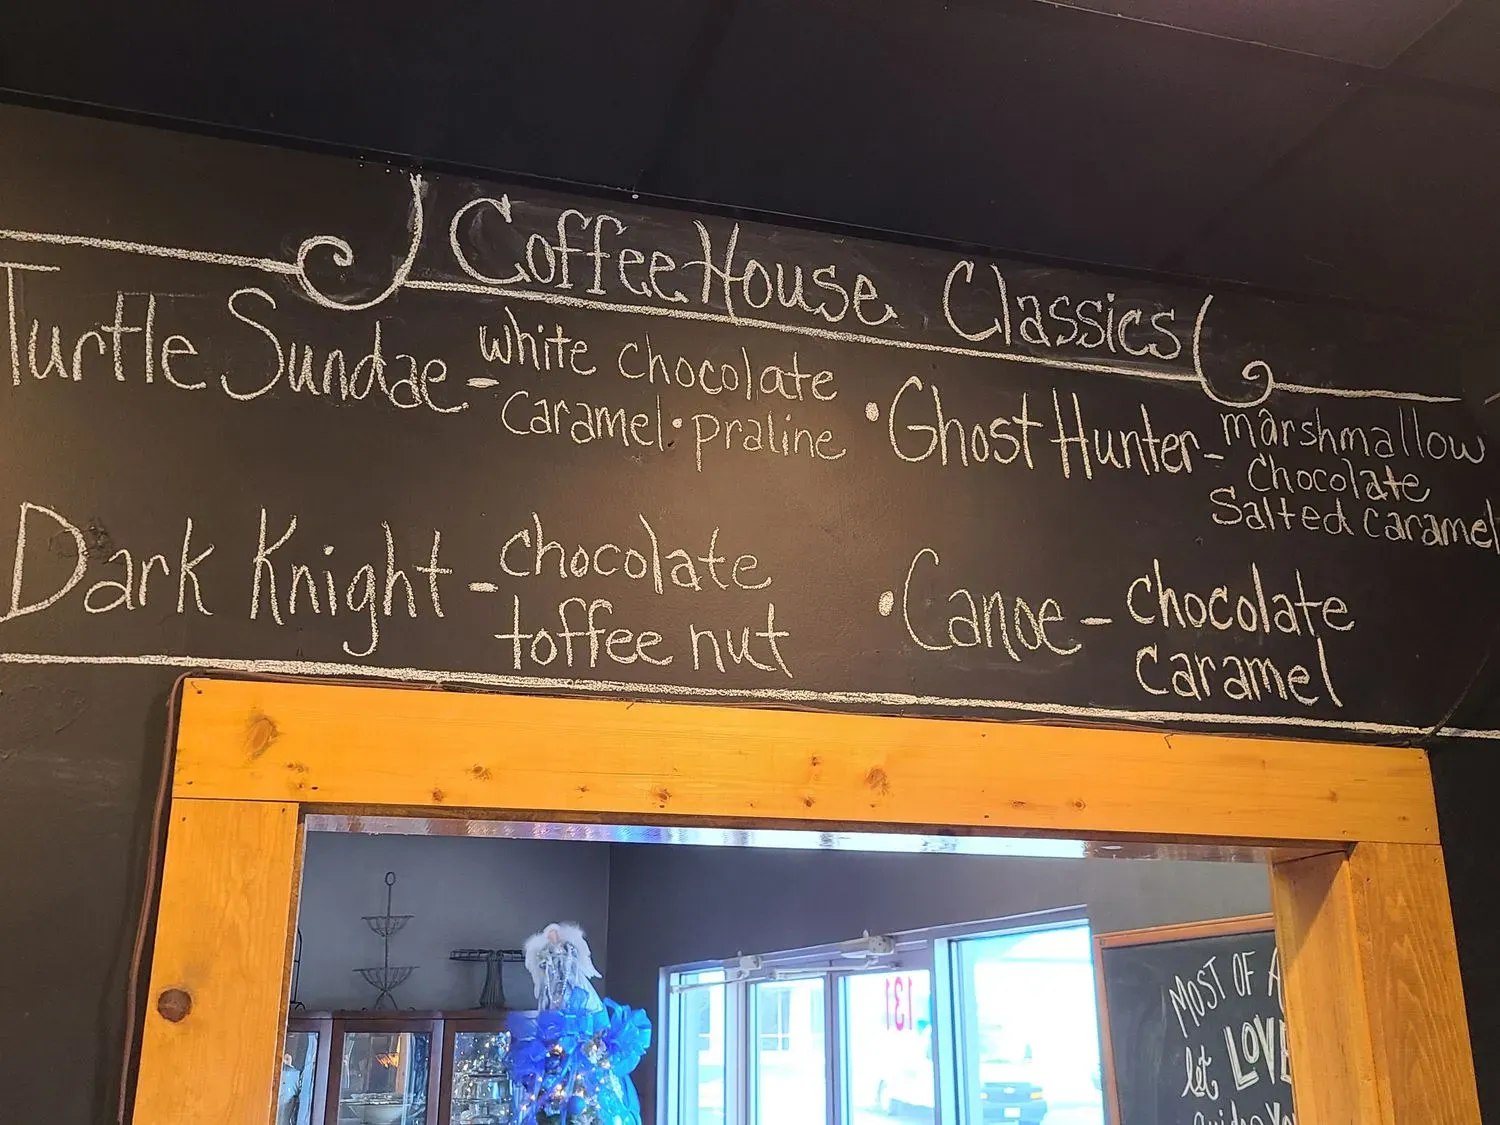 CoffeeHouse Classics
Turtle Sundae - white chocolate
caramel • praline
• Ghost Hunter - marshmallow
chocolate
Salted caramel
Dark Knight - chocolate
toffee nut
• Canoe - chocolate
caramel
131
MOST OF
let LOVE